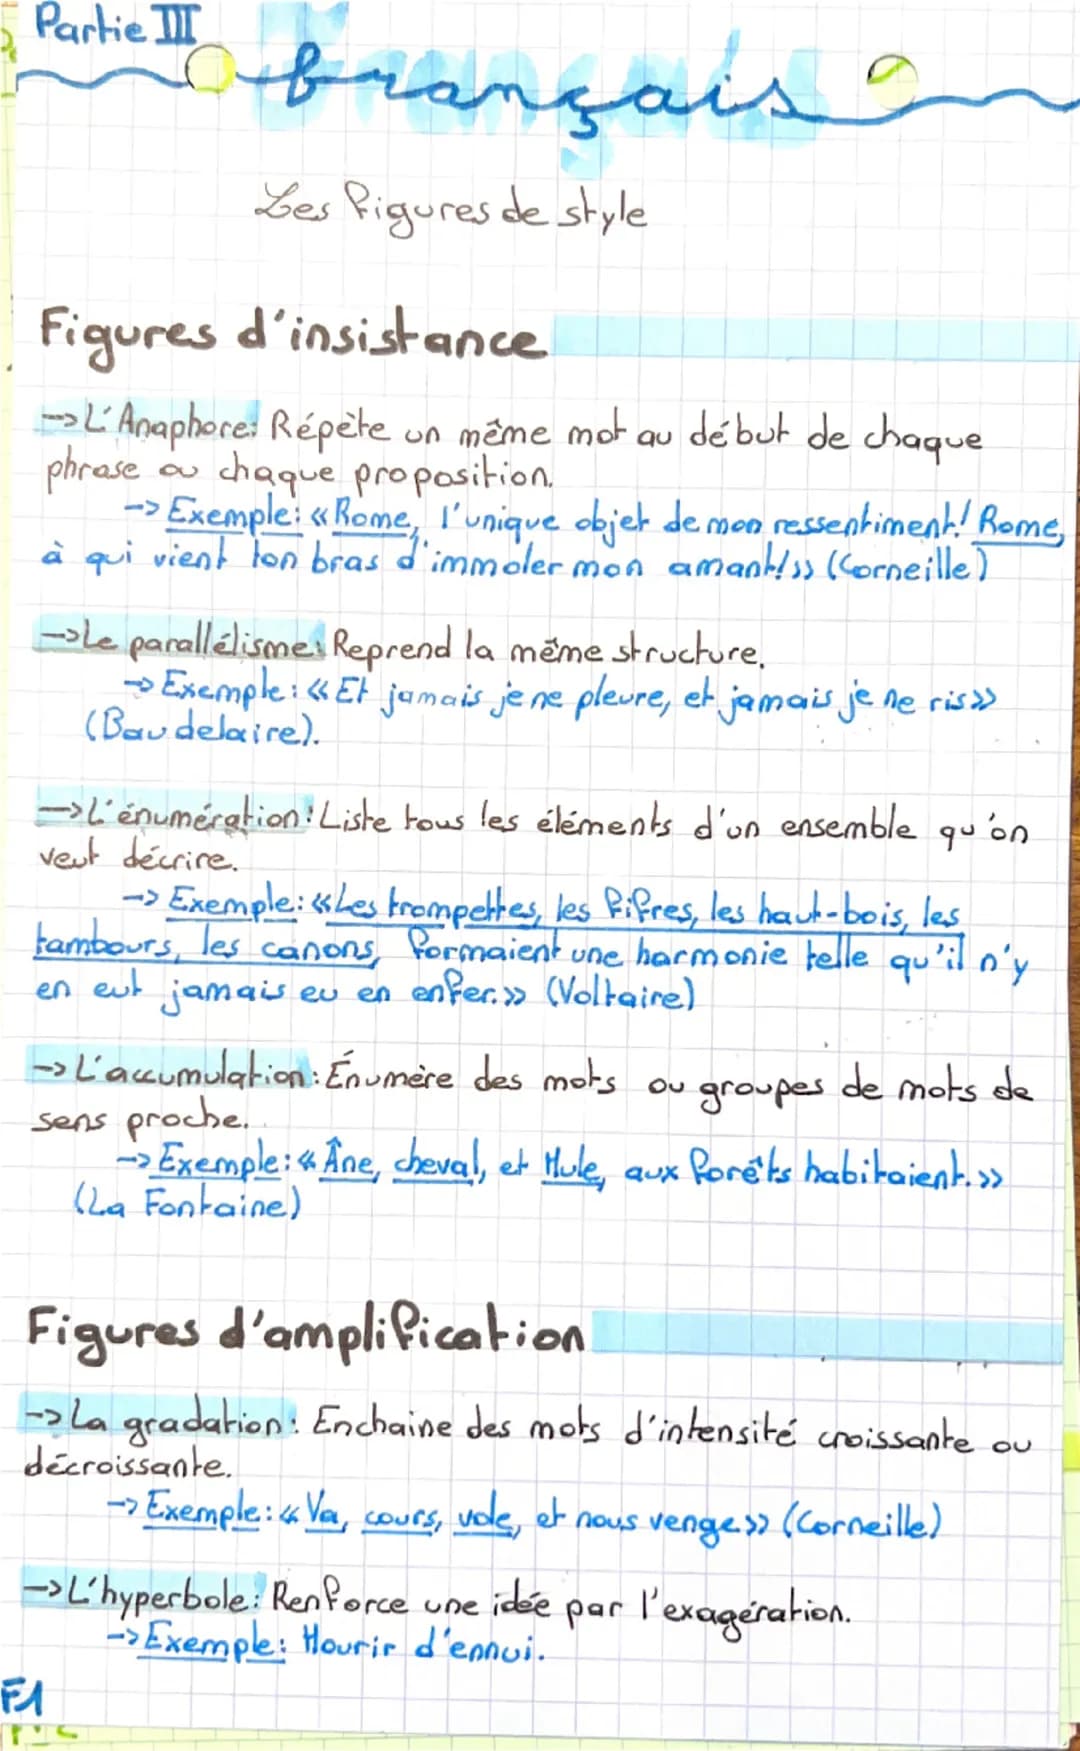 Partie III
français
Les figures de style
Figures d'insistance
->L'Anaphore: Répète un même mot au début de chaque
phrase ou chaque proposition.
-> Exemple: «Rome, l'unique objet de mon ressentiment! Rome,
à qui vient ton bras d'immoler mon amant!» (Corneille)
->Le parallélisme: Reprend la même structure.
-> Exemple: «Et jamais je ne pleure, et jamais je ne ris»
(Baudelaire).
->L'énumération: Liste tous les éléments d'un ensemble qu'on
veut décrire.
-> Exemple: «Les trompettes, les fifres, les haut-bois, les
tambours, les canons, formaient une harmonie telle qu'il n'y
en eut jamais eu en enfer.» (Voltaire)
-> L'accumulation: Énumère des mots ou groupes de mots de
sens proche.
-> Exemple: «Âne, cheval, et Mule, aux forêts habitaient.»
(La Fontaine)
Figures d'amplification
-> La gradation: Enchaine des mots d'intensité croissante ou
décroissante.
-> Exemple: «Va, cours, vole, et nous venge» (Corneille)
->L'hyperbole: Renforce une idée par l'exagération.
-> Exemple: Mourir d'ennui.
F1